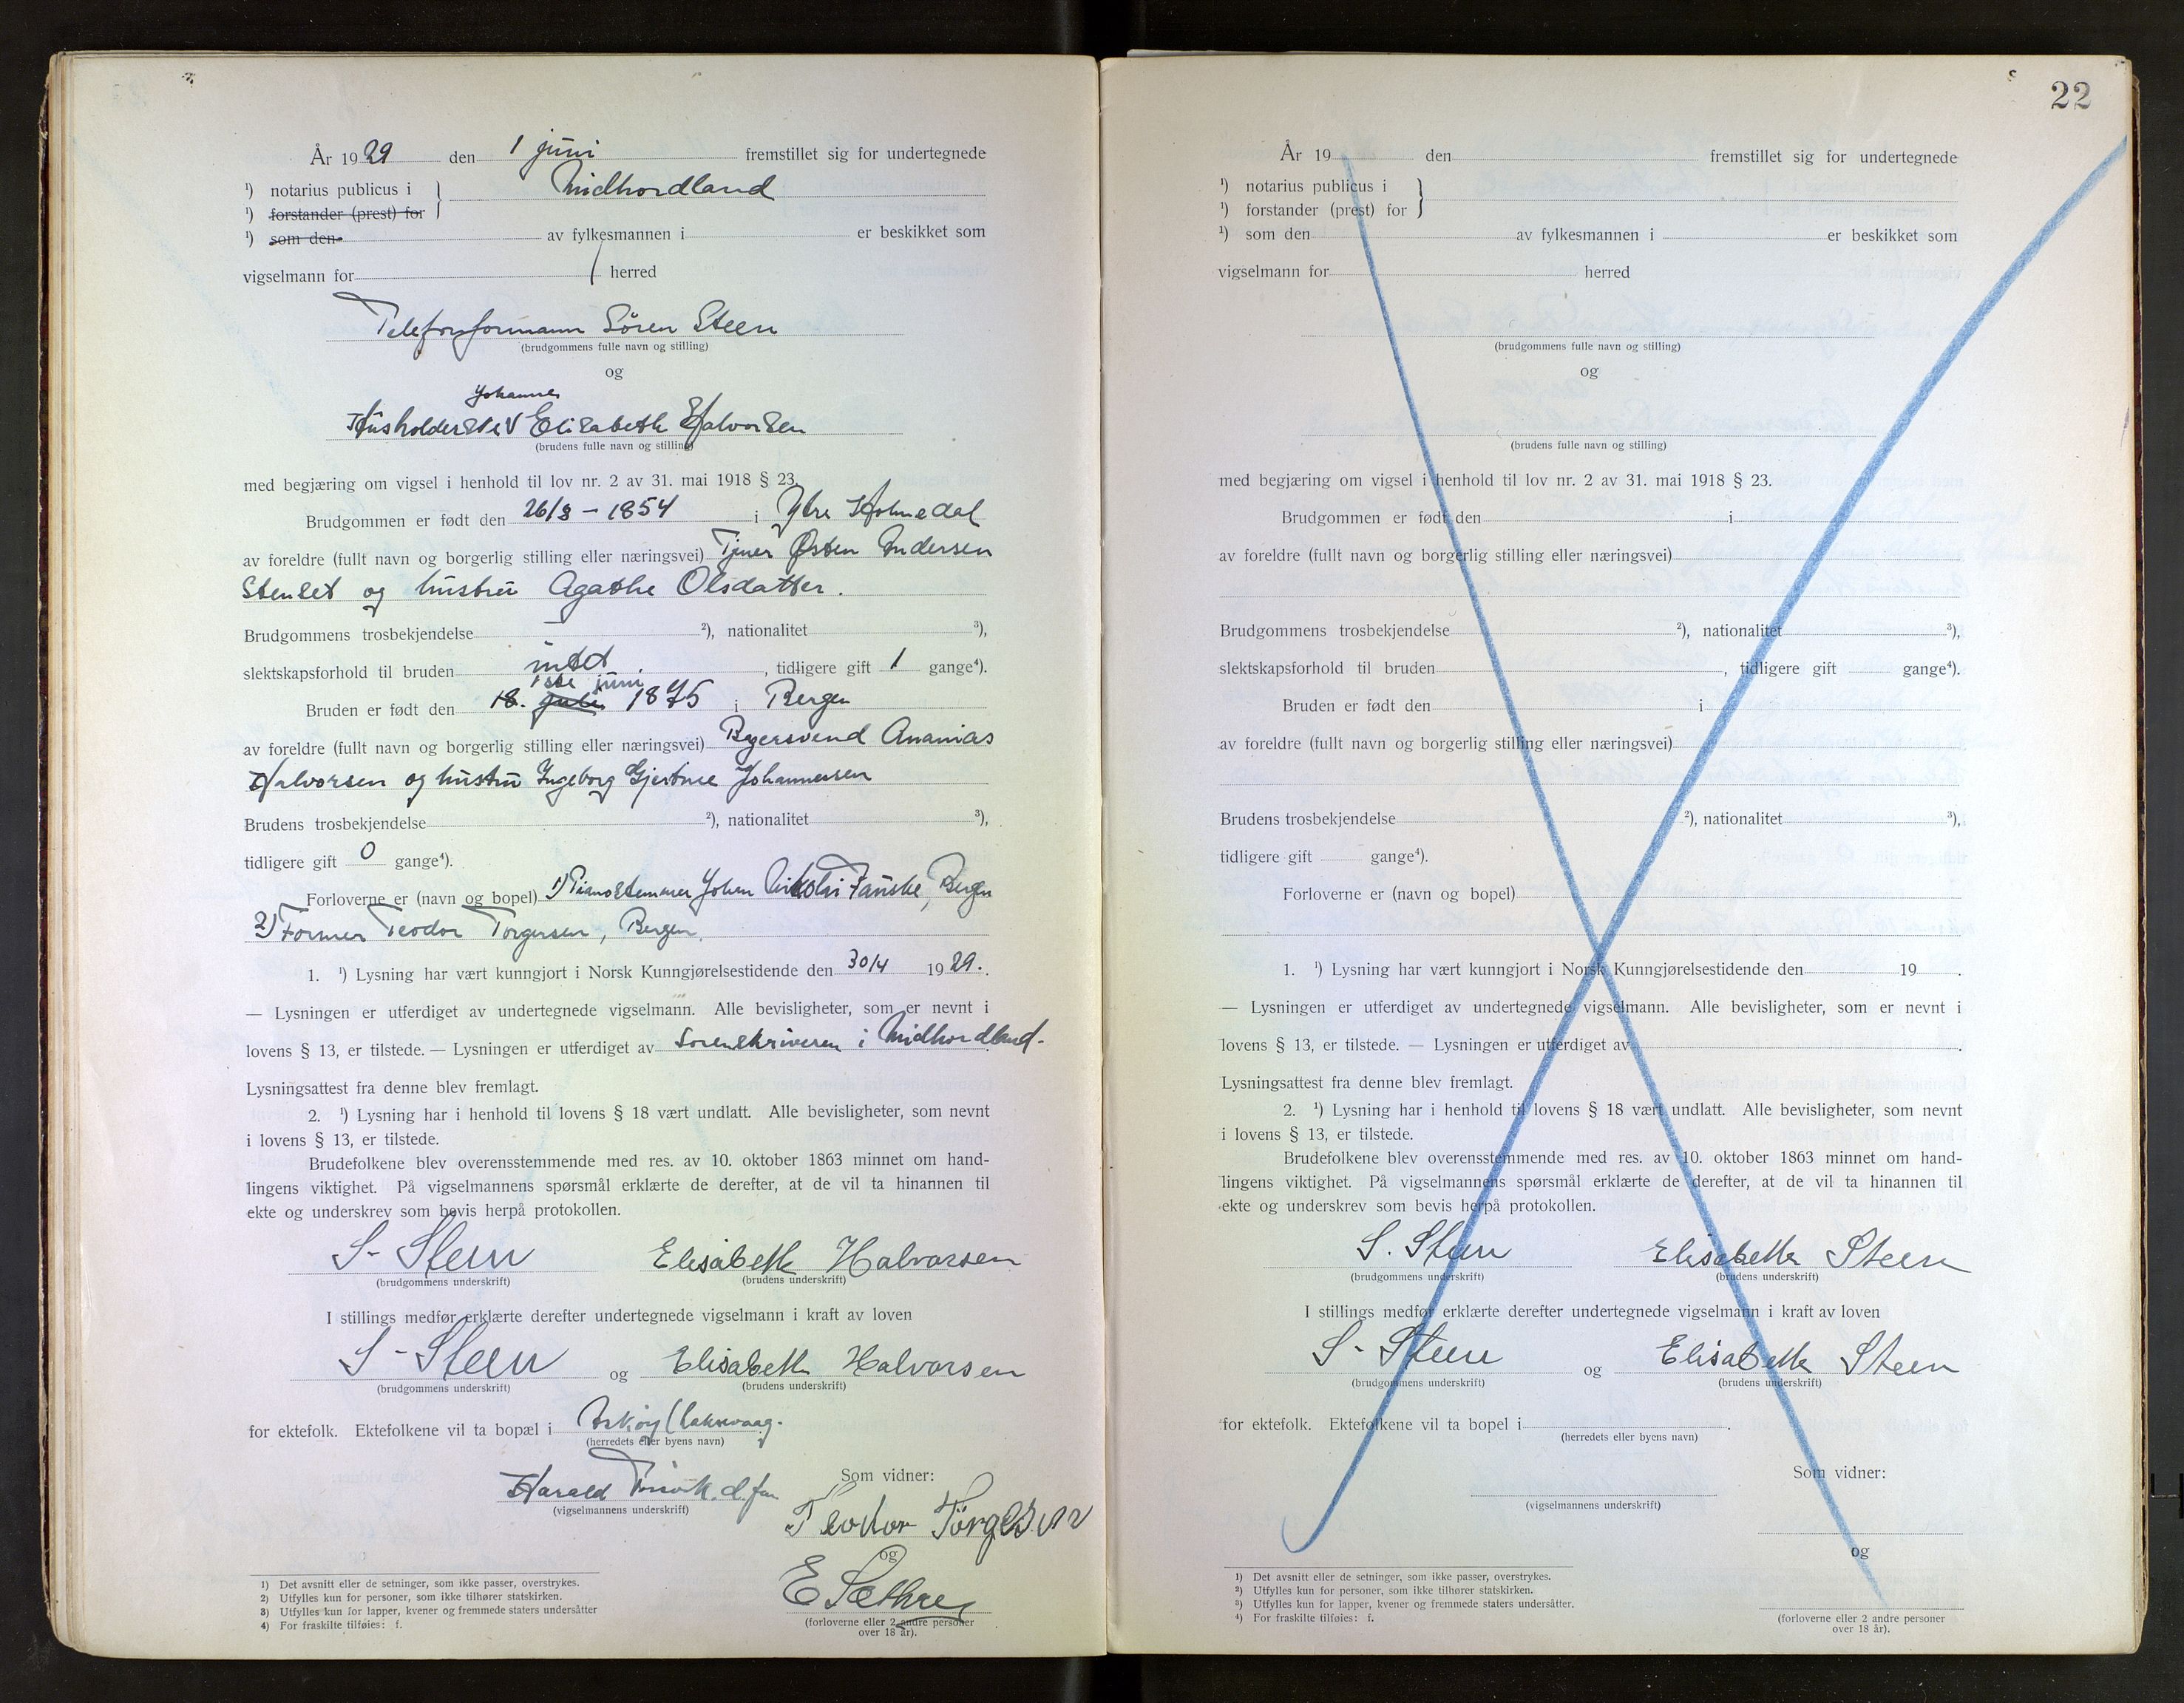 År 1929 den 1 juni fremstillet sig for undertegnede
¹) notarius publicus i } Midhordland
¹) forstander (prest) for
¹) som den av fylkesmannen i er beskikket som
vigselmann for herred
Telefonformann Sören Steen
(brudgommens fulle navn og stilling)
og
Johanne
Husholderske V Elisabeth Halvorsen
(brudens fulle navn og stilling)
med begjæring om vigsel i henhold til lov nr. 2 av 31. mai 1918 § 23.
Brudgommen er født den 26/8 - 1854 i Ytre Holmedal
av foreldre (fullt navn og borgerlig stilling eller næringsvei) Tjener Østen Andersen
Stenset og hustru Agathe Olsdatter.
Brudgommens trosbekjendelse — ²), nationalitet ³),
slektskapsforhold til bruden intet. , tidligere gift 1 gange⁴).
1ste juni
Bruden er født den 18. 1875 i Bergen
av foreldre (fullt navn og borgerlig stilling eller næringsvei) Bøjersvend Ananias
Halvorsen og hustru Ingeborg Gjertine Johannessen
Brudens trosbekjendelse ²), nationalitet ³),
tidligere gift 0 gange⁴).
Forloverne er (navn og bopel) 1) Pianostemmer Johan Nikolai Fauske, Bergen
2) Former Teodor Torgersen, Bergen.
1. ¹) Lysning har vært kunngjort i Norsk Kunngjørelsestidende den 30/4 1929.
— Lysningen er utferdiget av undertegnede vigselmann. Alle bevisligheter, som er nevnt i
lovens § 13, er tilstede. — Lysningen er utferdiget av Sorenskriveren i Midhordland.
Lysningsattest fra denne blev fremlagt.
2. ¹) Lysning har i henhold til lovens § 18 vært undlatt. Alle bevisligheter, som nevnt
i lovens § 13, er tilstede.
Brudefolkene blev overensstemmende med res. av 10. oktober 1863 minnet om hand-
lingens viktighet. På vigselmannens spørsmål erklærte de derefter, at de vil ta hinannen til
ekte og underskrev som bevis herpå protokollen.
S-Steen Elisabeth Halvorsen
(brudgommens underskrift) (brudens underskrift)
I stillings medfør erklærte derefter undertegnede vigselmann i kraft av loven
S-Steen og Elisabeth Halvorsen
(brudgommens underskrift) (brudens underskrift)
for ektefolk. Ektefolkene vil ta bopæl i Askøy (Laksevaag.
(herredets eller byens navn)
Harald
(vigselmannens underskrift)
Som vidner:
Teodor Törgersen
og
E Sæthre
(forloverne eller 2 andre personer
over 18 år).
1) Det avsnitt eller de setninger, som ikke passer, overstrykes.
2) Utfylles kun for personer, som ikke tilhører statskirken.
3) Utfylles kun for lapper, kvener og fremmede staters undersåtter
4) For fraskilte tilføies: f.
22
År 19 den fremstillet sig for undertegnede
¹) notarius publicus i }
¹) forstander (prest) for
¹) som den av fylkesmannen i er beskikket som
vigselmann for herred
(brudgommens fulle navn og stilling)
og
(brudens fulle navn og stilling)
med begjæring om vigsel i henhold til lov nr. 2 av 31. mai 1918 § 23.
Brudgommen er født den i
av foreldre (fullt navn og borgerlig stilling eller næringsvei)
Brudgommens trosbekjendelse ²), nationalitet ³),
slektskapsforhold til bruden , tidligere gift gange⁴).
Bruden er født den i
av foreldre (fullt navn og borgerlig stilling eller næringsvei)
Brudens trosbekjendelse ²), nationalitet ³),
tidligere gift gange⁴).
Forloverne er (navn og bopel)
1. ¹) Lysning har vært kunngjort i Norsk Kunngjørelsestidende den 19 .
— Lysningen er utferdiget av undertegnede vigselmann. Alle bevisligheter, som er nevnt i
lovens § 13, er tilstede. — Lysningen er utferdiget av .
Lysningsattest fra denne blev fremlagt.
2. ¹) Lysning har i henhold til lovens § 18 vært undlatt. Alle bevisligheter, som nevnt
i lovens § 13, er tilstede.
Brudefolkene blev overensstemmende med res. av 10. oktober 1863 minnet om hand-
lingens viktighet. På vigselmannens spørsmål erklærte de derefter, at de vil ta hinannen til
ekte og underskrev som bevis herpå protokollen.
S. Steen Elisabeth Steen
(brudgommens underskrift) (brudens underskrift)
I stillings medfør erklærte derefter undertegnede vigselmann i kraft av loven
S- Steen og Elisabeth Steen
(brudgommens underskrift) (brudens underskrift)
for ektefolk. Ektefolkene vil ta bopel i .
(herredets eller byens navn)
Som vidner:
(vigselmannens underskrift)
og
(forloverne eller 2 andre personer
over 18 år).
1) Det avsnitt eller de setninger, som ikke passer, overstrykes.
2) Utfylles kun for personer, som ikke tilhører statskirken.
3) Utfylles kun for lapper, kvener og fremmede staters undersåtter.
4) For fraskilte tilføies: f.